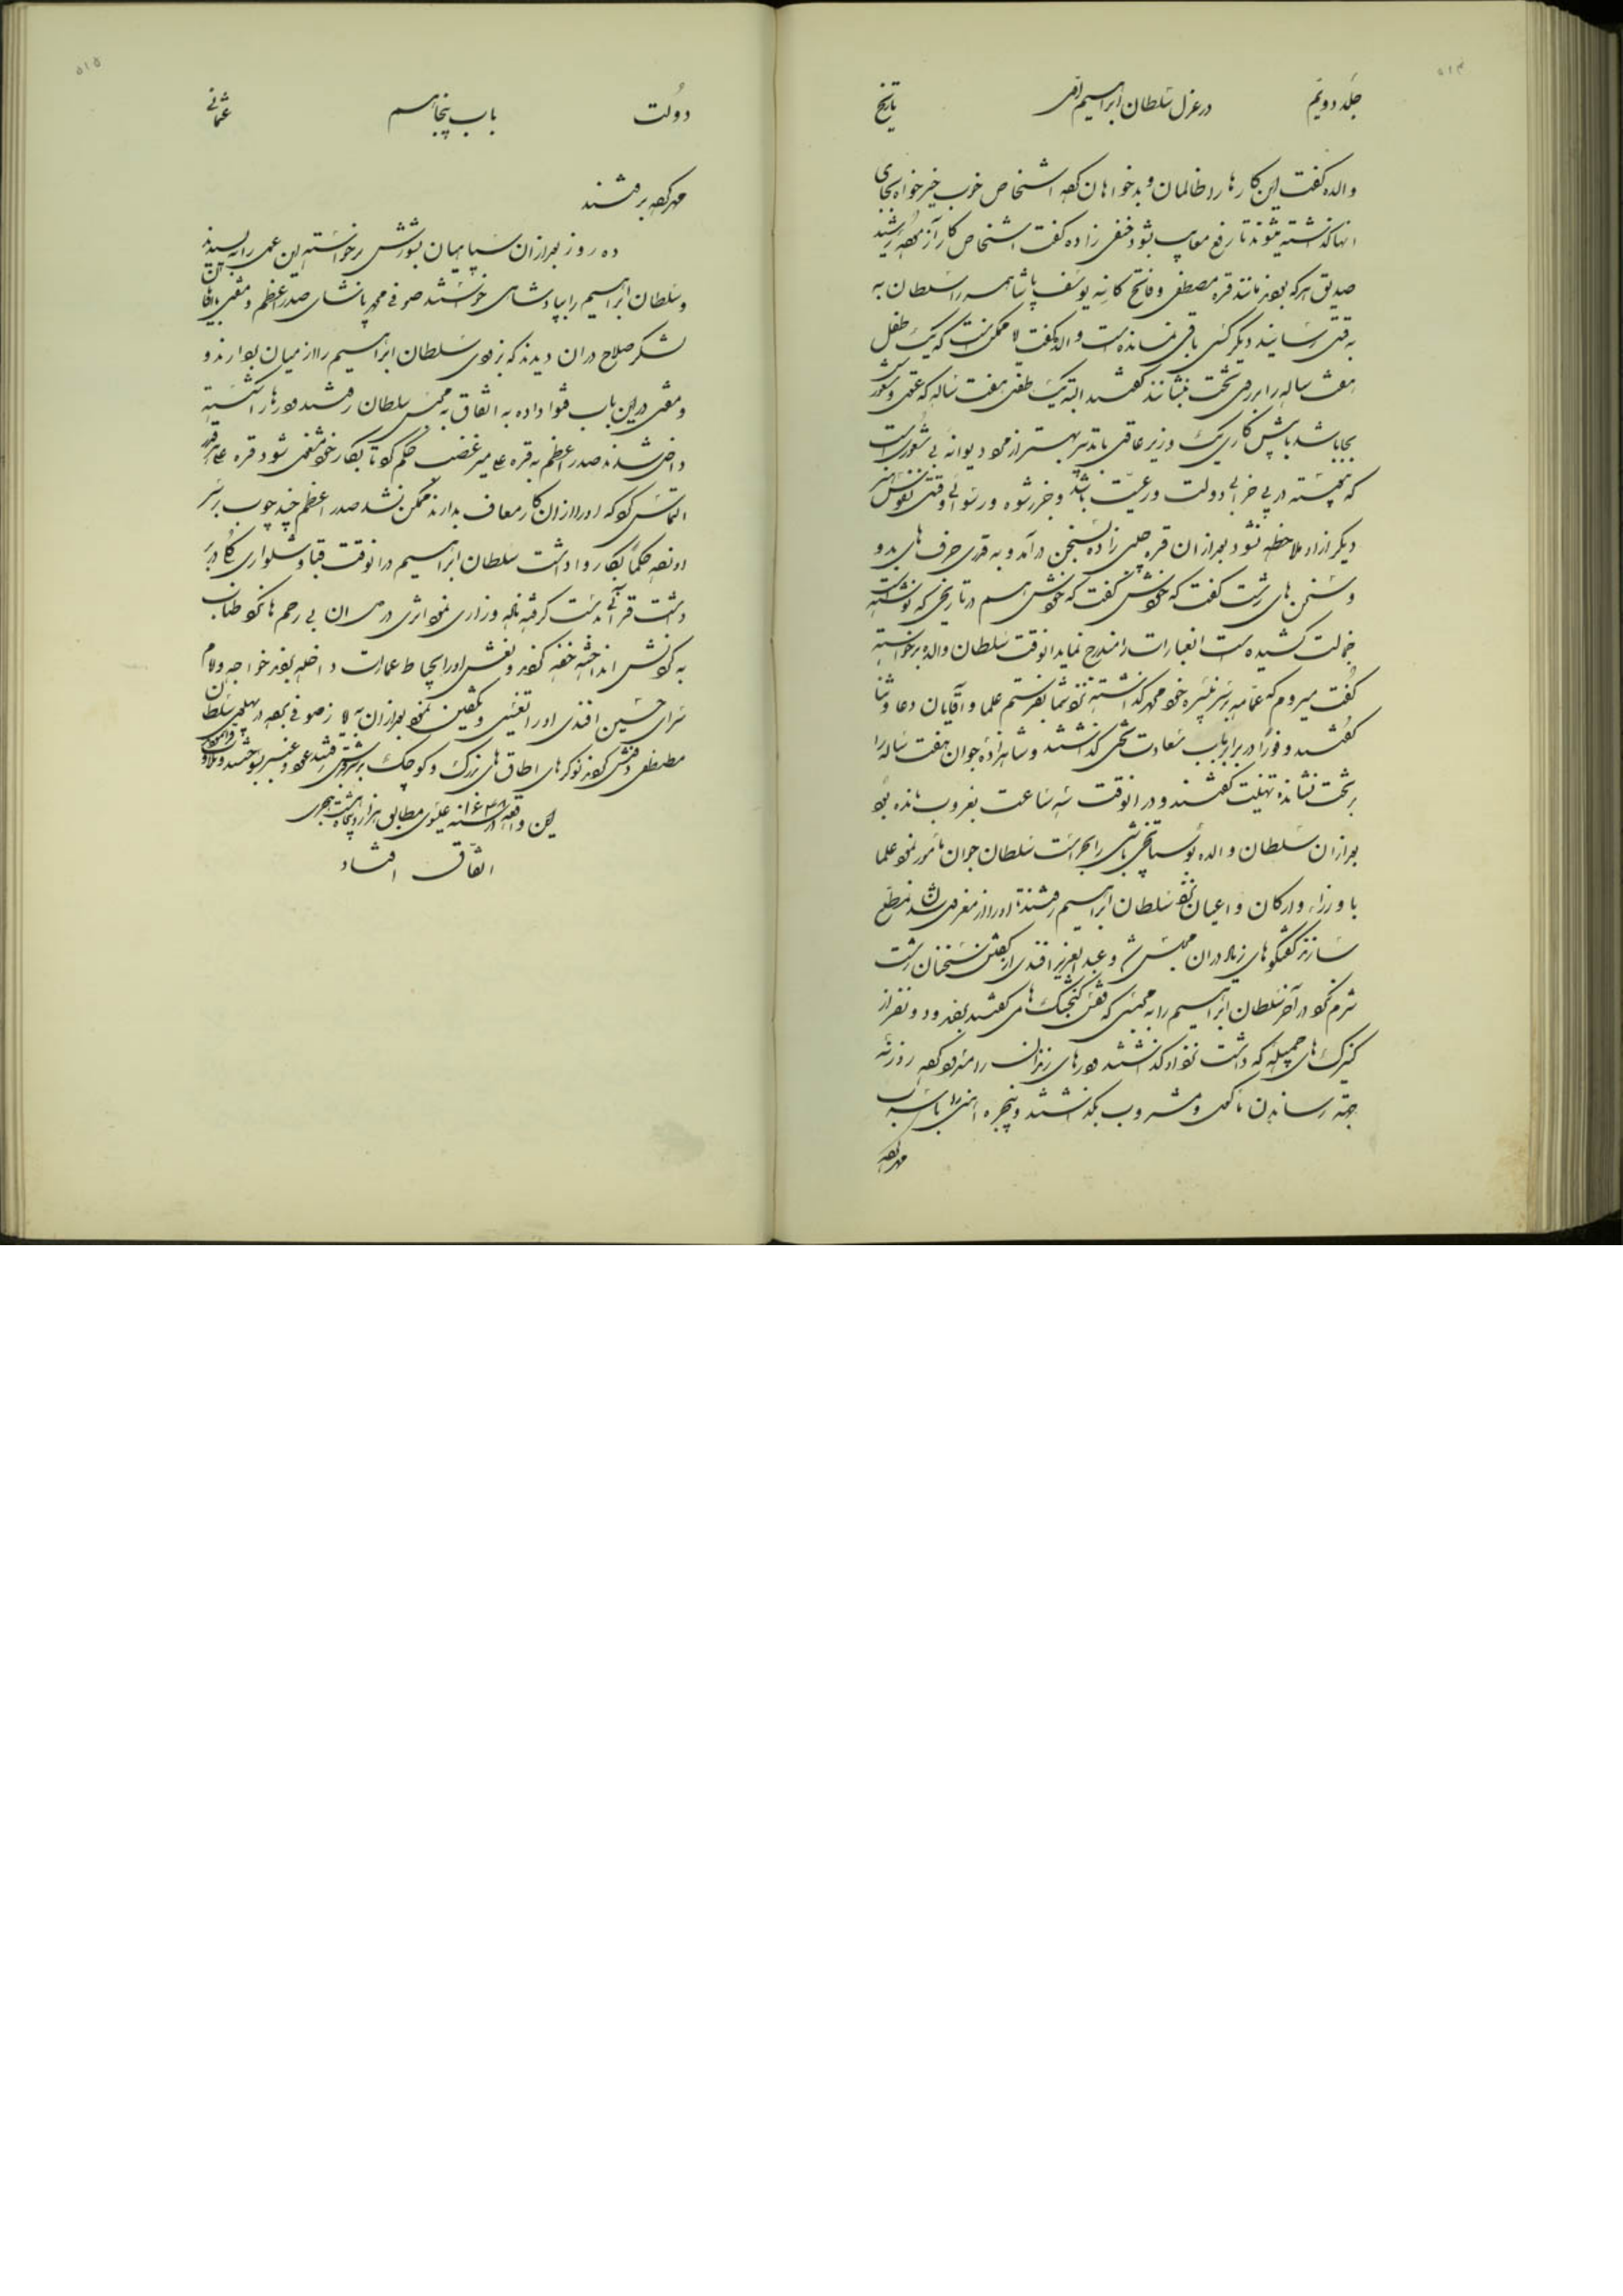 ۵۱۴
جلد دویم در عزل سلطان ابراهیم اول تاریخ
والده گفت این کارها را ظالمان و بدخواهان کرده اشخاص خوب خیرخواه بجای
انها گذاشته میشوند تا رفع معایب شود حنفی زاده گفت اشخاص کار آزموده
صدیق هر که بودند مانند قره مصطفی و فاتح کانیه یوسف پاشا همه را سلطان به
به قتل رسانید دیگر کسی باقی نمانده است والده گفت لا ممکن است که یک طفل
هفت ساله را بر روی تخت بنشانند گفتند البته یک طفل هفت ساله که عقل و شعور
بجا باشد با پیش کاری یک وزیر عاقل با تدبیر بهتر از مرد دیوانه بی شعور است
که همیشه در پی خرابی دولت و رعیت باشد و جز رشوه و رسوائی وقتی
دیگر از او ملاحظه نشود بعد از ان قره چلبی زاده بسخن در آمد و به قدری حرف های بد و
و سخن های زشت گفت که خودش گفت که خودش هم در تاریخی که نوشته
خجالت کشیده است انعبارات را مندرج نماید انوقت سلطان والده برخواسته
گفت میروم که عمامه بر سر نبیره خود گذاشته نزد شما بفرستم علما و آقایان دعا و ثنا
گفتند و فوراً در برابر باب سعادت تختی گذاشتند و شاهزاده جوان هفت ساله را
بر تخت نشانده تهنیت گفتند و در انوقت سه ساعت بغروب مانده بود
بعد از ان سلطان والده بوستانچی باشی را بحراست سلطان جوان مامور نمود علما
با وزراء و ارکان و اعیان نزد سلطان ابراهیم رفتند تا او را از معزولی مطلع
سازند گفتگوهای زیاد در ان مجلس شد و عبدالعزیز افندی از گفتن سخنان زشت
شرم نکرد در آخر سلطان ابراهیم را به محبسی که قفس گنجشک ها می گفتند بفدود و نفر از
کنیزک های جمیله که داشت نزد او گذاشتند درهای زندان را مسدود کرده روزنه
جهة رساندن ماکول و مشروب بگذاشتند و پنجره
مهر کرده
۵۱۵
دولت باب پنجاهم عثمانی
مهر کرده برفتند
ده روز بعد از ان سپاهیان بشورش برخواسته این عمل را نه پسندیدند
و سلطان ابراهیم را بپادشاهی خواستند صوفی محمد پاشای صدر اعظم و مفتی با آقایان
لشکر صلاح در ان دیدند که بزودی سلطان ابراهیم را از میان بردارند و
و مفتی در این باب فتوا داده به اتفاق به محبس سلطان رفتند درها را شکسته
داخل شدند صدر اعظم به قره علی میر غضب حکم کرد تا بکار خود مشغول شود قره علی
التماس کرد که او را از ان کار معاف بدارند ممکن نشد صدر اعظم چند چوب بر سر
او زده حکماً بکار وا داشت سلطان ابراهیم در انوقت قبا و شلواری در بر
داشت قرآنی بدست گرفته ناله و زاری نمود اثری در دل ان بی رحم ها نکرد طناب
به گردنش انداخته خفه کردند و نعش او را بحیاط عمارت داخله بردند خواجه و امام
سرای حسین افندی او را تغسیل و تکفین نمود بعد از ان به ایا صوفی برده در پهلوی سلطان
مصطفی دفنش کردند نوکرهای اطاق های بزرگ و کوچک عود و عنبر بسوختند
این واقعه در سنه ۱۶۴۸ عیسوی مطابق هزار و پنجاه و هشت هجری
اتفاق افتاد